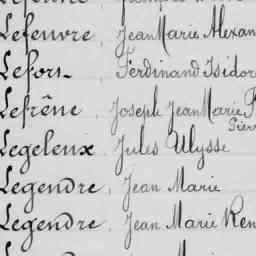 Lefeuvre, Jean Marie Alexan
Lefort, Ferdinand Isidor
Lefrêne, Joseph Jean Marie
Pierr
Legeleux, Jules Ulysse
Legendre, Jean Marie
Legendre, Jean Marie Ren